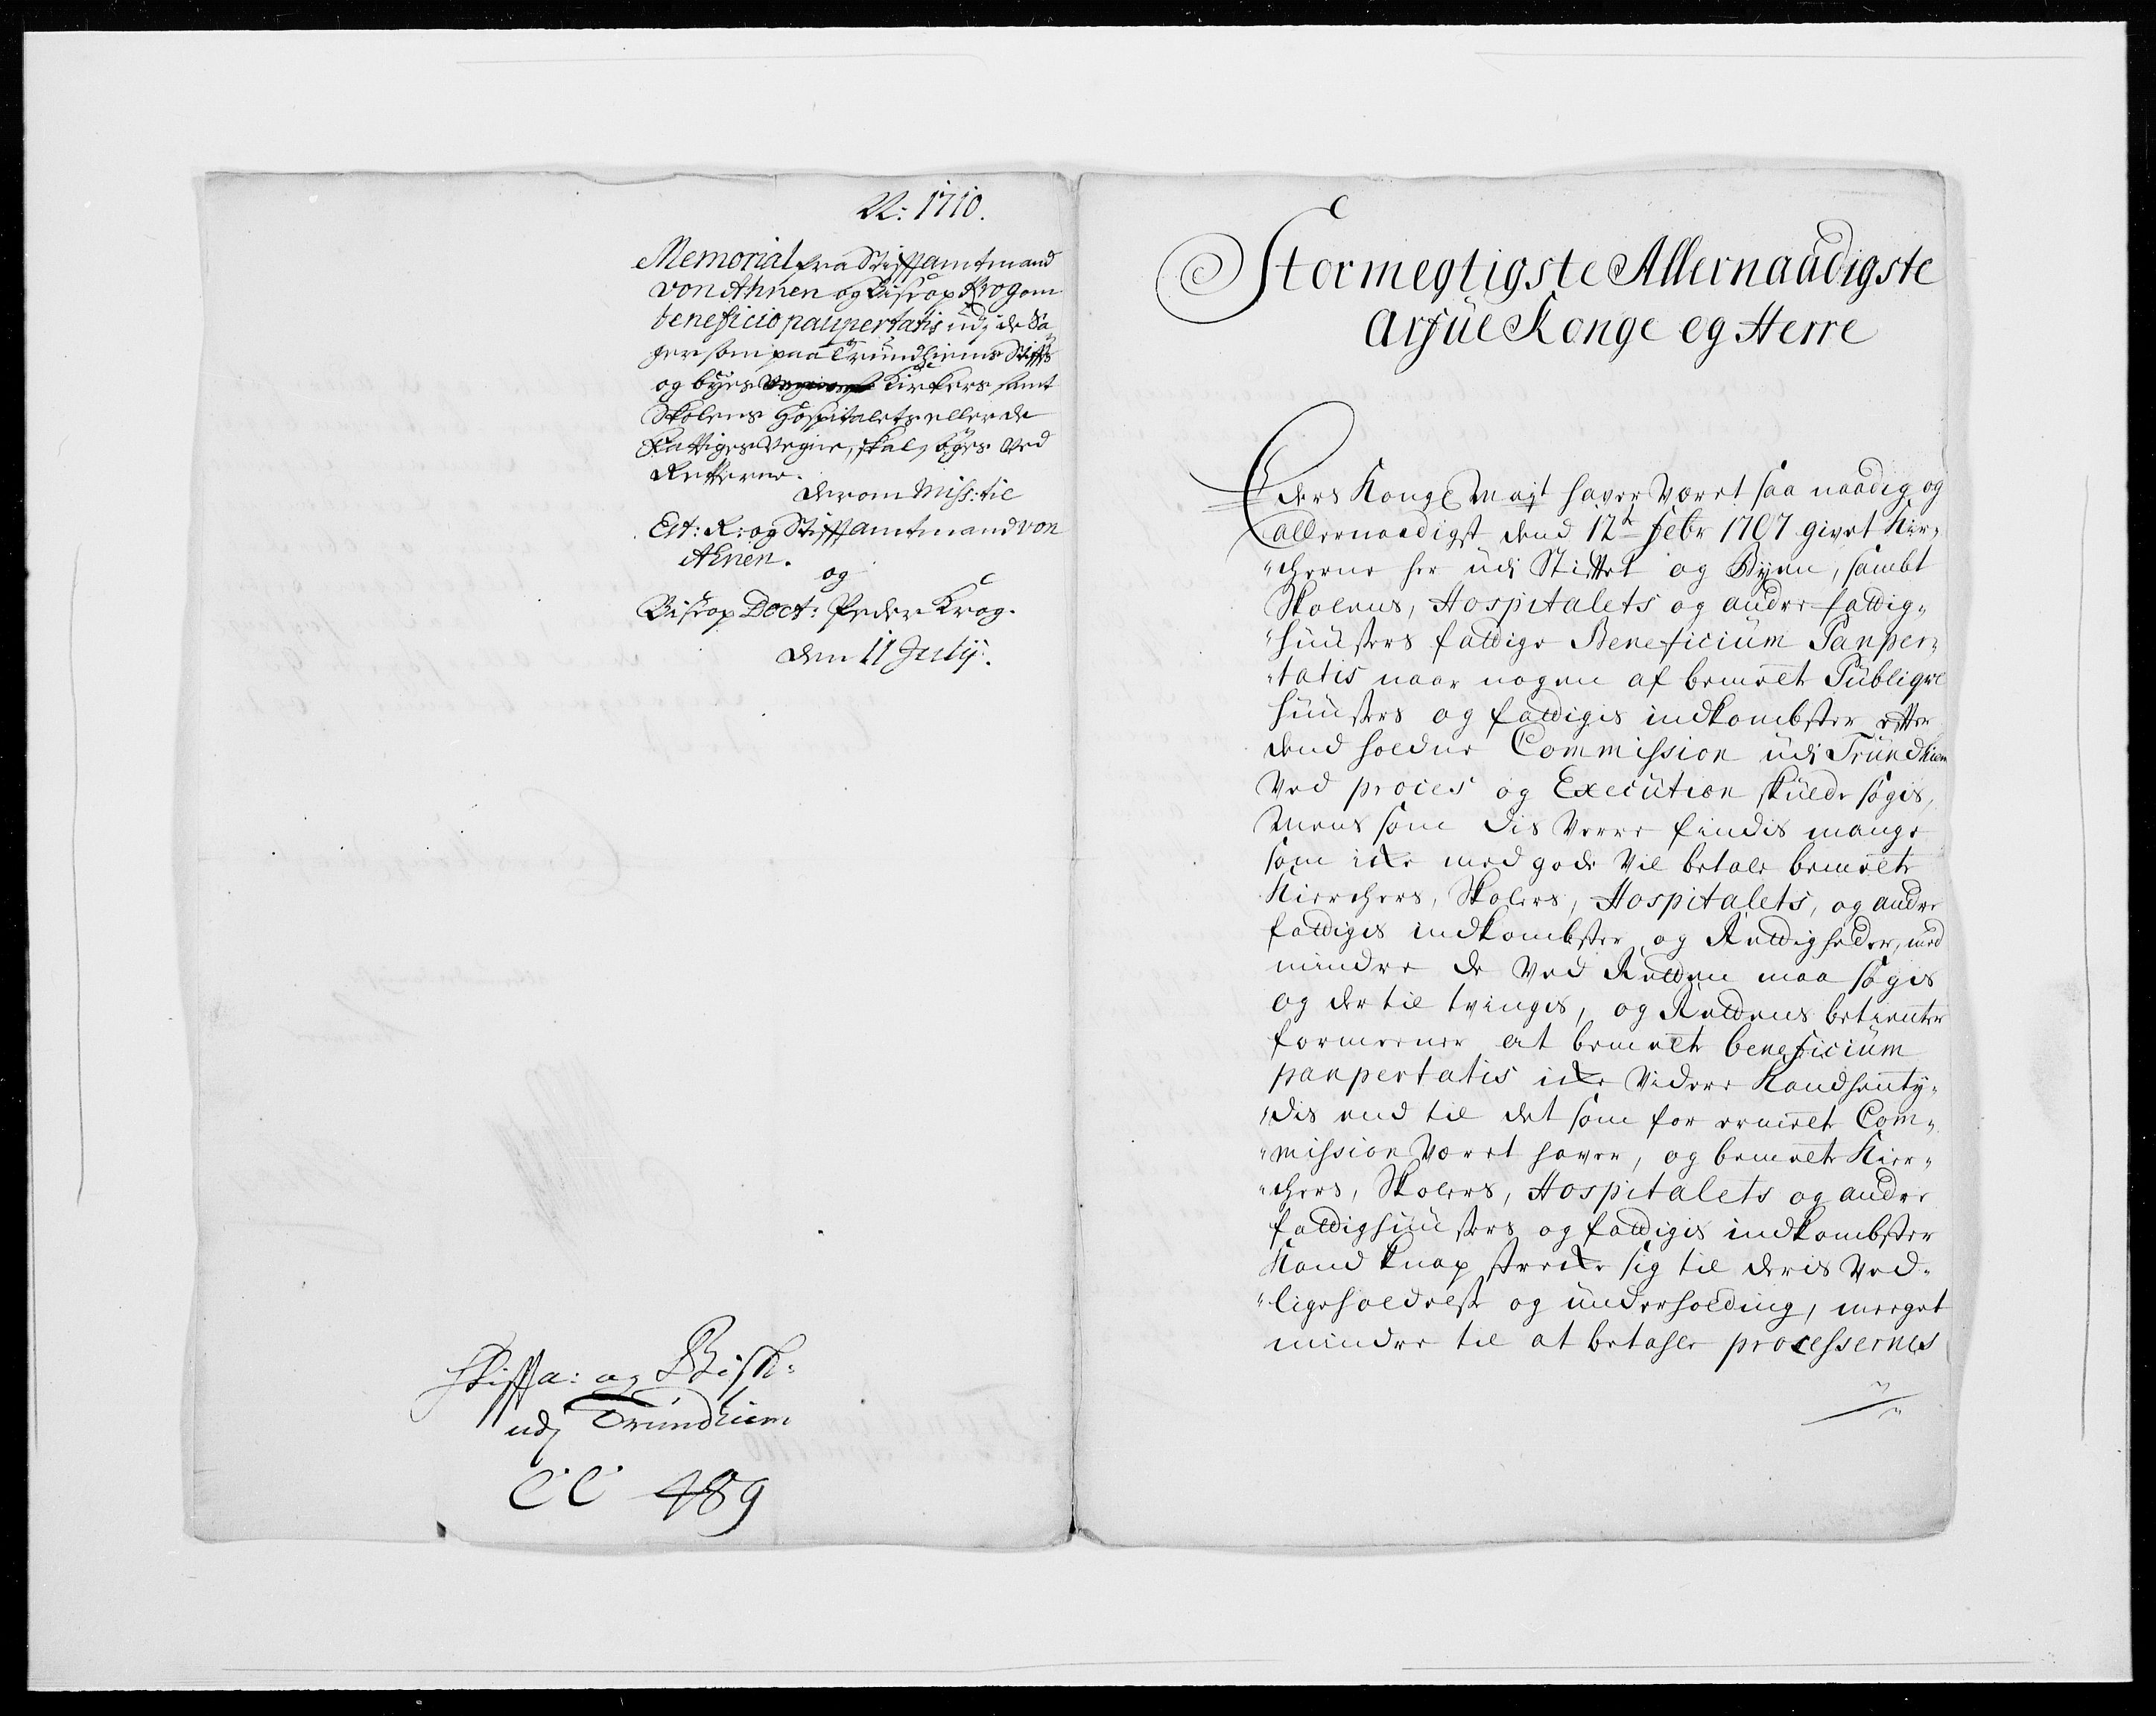 22: 1710.
Memorial fra Stifftamtmand
von Ahnen og Biscop Krog om
beneficio paupertatis udj de Sa
ger som paa Trundhiems Stiffts
og byes Kirkers samt
Skolens Hospitalets eller de
Fattiges Vegne, skal søges Ved
Retterne.
derom Miss: til
Est: R: og Stifftamtmand von
Ahnen.
og
Biscop Doct: Peder Krog.
den 11 July.
Stiffta: og Bisk:
udj Trundhiem
CC 489
Stormegtigste Allernaadigste
Arfue Konge og Herre
Eders Kongl Mayt hafver Været saa naadig og
allernaadigst dend 12te Febr 1707 givet Kir„
„cherne her udi Stifftet og Byen, sambt
Skolens, Hospitalets og andre fattig„
„huusers fattige Beneficium Pauper„
„tatis naar nogen af bemelte Publiqve
huusers og fattiges indkombster effter
dend holdne Commission udi Trundhiem
Ved proces og Execution skulde søges,
Mens som dis Verre findis mange
som icke med gode Vil betale bemelte
Kierchers, Skolers, Hospitalets, og andre
fattiges indkombster og Rettigheder, med
mindre de Ved Retten maa søges
og der til tvinges, og Rettens betiente
formeener at bemelte beneficium
paupertatis icke Videre Kand henty„
„dis end til det som for ermelte Com„
„mission Værret hafver, og bemelte Kier„
„chers, Skolers, Hospitalets og andre
fattighuusers og fattiges indkombster
Kand knap strecke sig til deris Ved„
„ligeholdelse og underholding, meeget
mindre til at betahle processernes